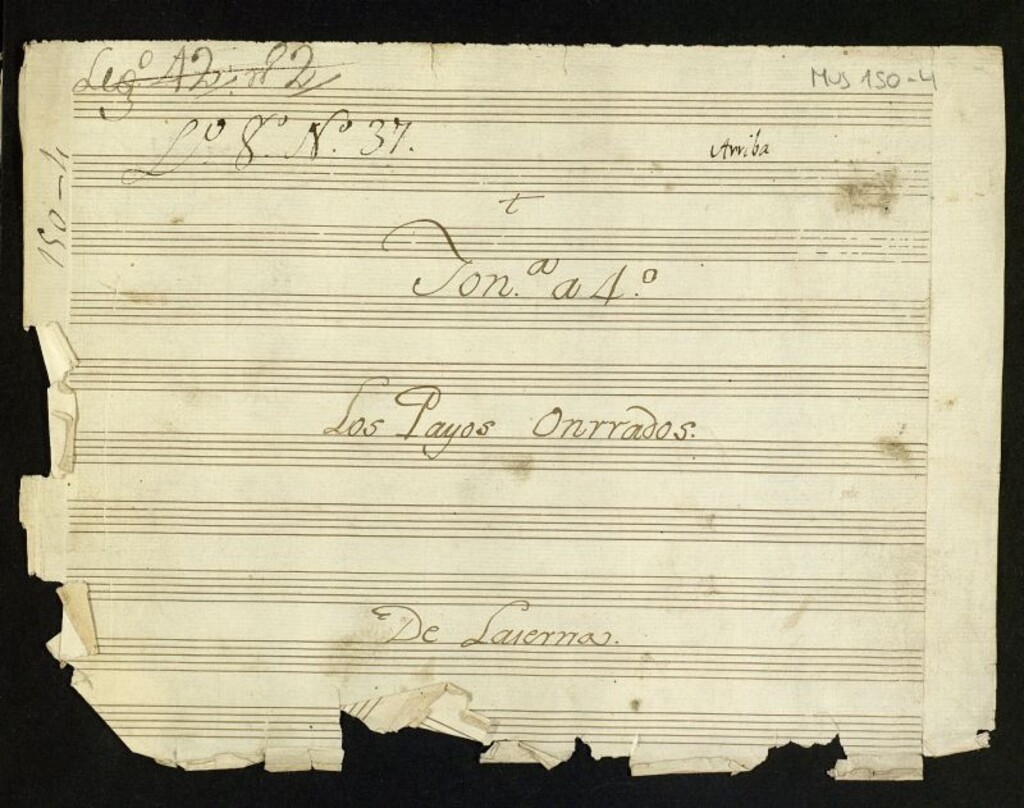 Leg.º 42. nº 2
Mus 150-4
L.º 8.º N.º 37.
Arriba
150-4
t
Ton.ª a 4.º
Los Payos Onrrados.
De Laserna.